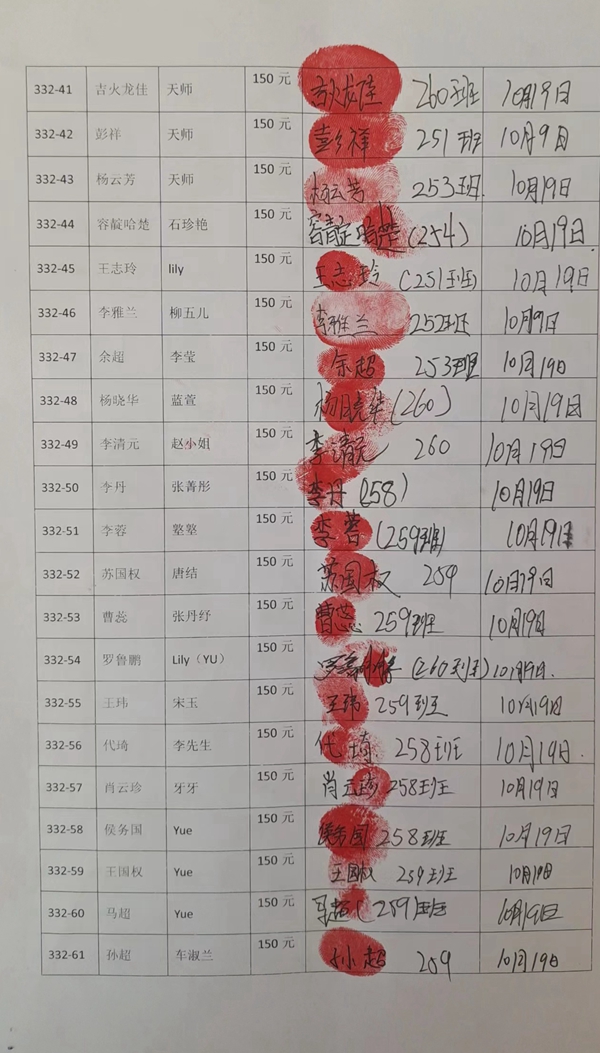 332-41 吉火龙佳 天师 150 元 吉火龙佳 260班 10月19日
332-42 彭祥 天师 150 元 彭祥 251班 10月9日
332-43 杨云芳 天师 150 元 杨云芳 253班 10月19日
332-44 容靛哈楚 石珍艳 150 元 容靛哈楚 (254) 10月19日
332-45 王志玲 lily 150 元 王志玲 (251班) 10月19日
332-46 李雅兰 柳五儿 150 元 李雅兰 252班 10月9日
332-47 余超 李莹 150 元 余超 253班 10月19日
332-48 杨晓华 蓝萱 150 元 杨晓华 (260) 10月19日
332-49 李清元 赵小姐 150 元 李清元 260 10月19日
332-50 李丹 张菁彤 150 元 李丹 (258) 10月19日
332-51 李蓉 150 元 李蓉 (259班) 10月19日
332-52 苏国权 唐结 150 元 苏国权 259 10月19日
332-53 曹蕊 张丹纾 150 元 曹蕊 259班 10月19日
332-54 罗鲁鹏 Lily（YU） 150 元 (260班) 10月19日.
332-55 王玮 宋玉 150 元 王玮 259班 10月19日
332-56 代琦 李先生 150 元 代琦 258班 10月19日.
332-57 肖云珍 牙牙 150 元 肖云珍 258班 10月19日
332-58 侯务国 Yue 150 元 侯务国 258班 10月19日
332-59 王国权 Yue 150 元 王国权 259班 10月19日
332-60 马超 Yue 150 元 马超 (259)班 10月19日
332-61 孙超 车淑兰 150 元 孙超 259 10月19日